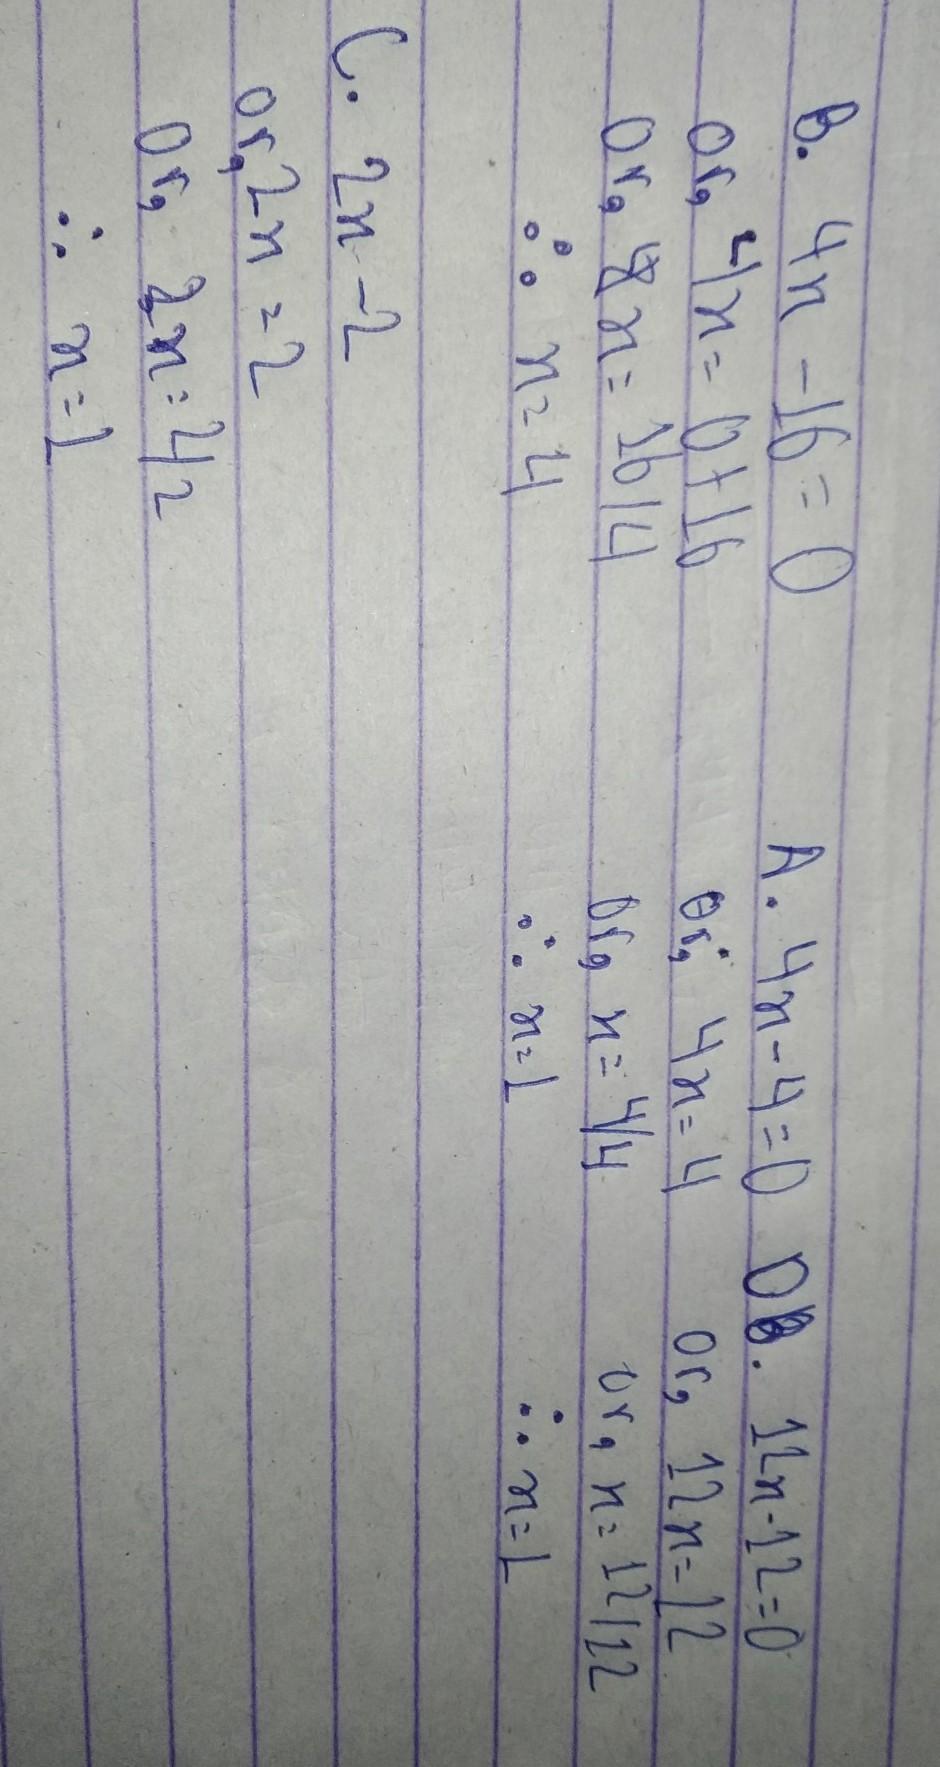 B. 4x - 16 = 0
or, 4x = 0 + 16
or, x = 16/4
∴ x = 4
A. 4x - 4 = 0
or, 4x = 4
or, x = 4/4
∴ x = 1
D. 12x - 12 = 0
or, 12x = 12
or, x = 12/12
∴ x = 1
C. 2x - 2
or, 2x = 2
or, 2x = 2/2
∴ x = 1